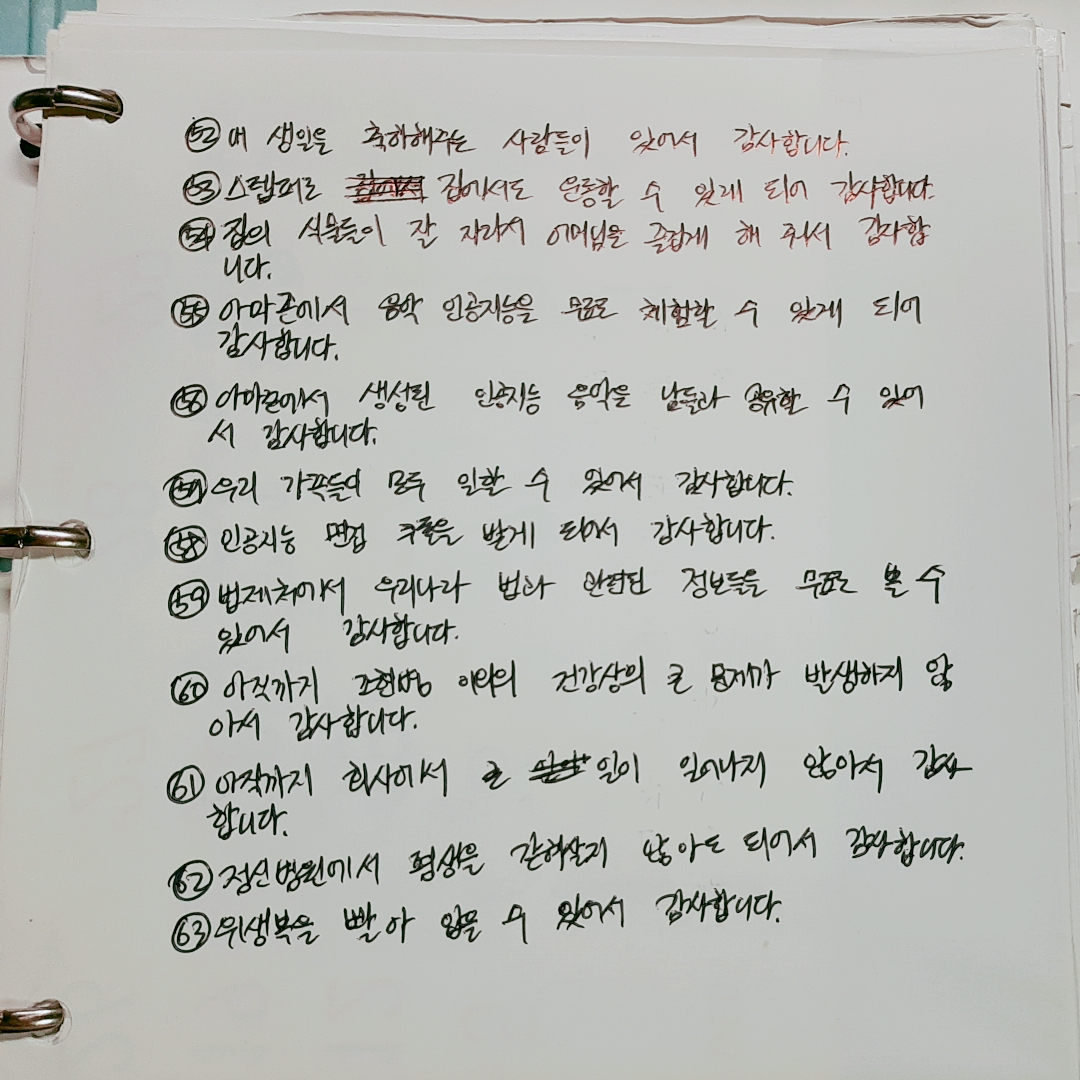 52 내 생일을 축하해주는 사람들이 있어서 감사합니다.
53 스텝퍼로 집에서도 운동할 수 있게 되어 감사합니다.
54 집의 식물들이 잘 자라서 어머님을 즐겁게 해 줘서 감사합
니다.
55 아마존에서 음악 인공지능을 무료로 체험할 수 있게 되어
감사합니다.
56 아마존에서 생성된 인공지능 음악을 남들과 공유할 수 있어
서 감사합니다.
57 우리 가족들이 모두 일할 수 있어서 감사합니다.
58 인공지능 면접 쿠폰을 받게 되어서 감사합니다.
59 법제처에서 우리나라 법과 관련된 정보들을 무료로 볼 수
있어서 감사합니다.
60 아직까지 조현병 이외의 건강상의 큰 문제가 발생하지 않
아서 감사합니다.
61 아직까지 회사에서 큰 일이 일어나지 않아서 감사
합니다.
62 정신병원에서 평생을 갇혀살지 않아도 되어서 감사합니다.
63 위생복을 빨아 입을 수 있어서 감사합니다.